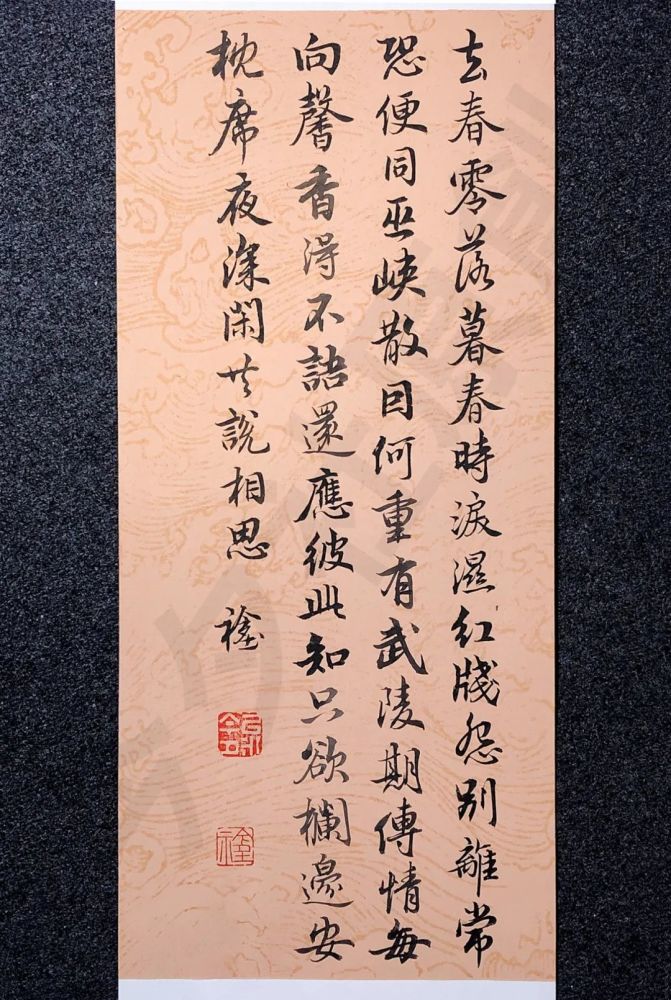 去春零落暮春時淚濕紅牋怨別離常
恐便同巫峽散因何重有武陵期傳情每
向馨香得不語還應彼此知只欲欄邊安
枕席夜深閑共說相思